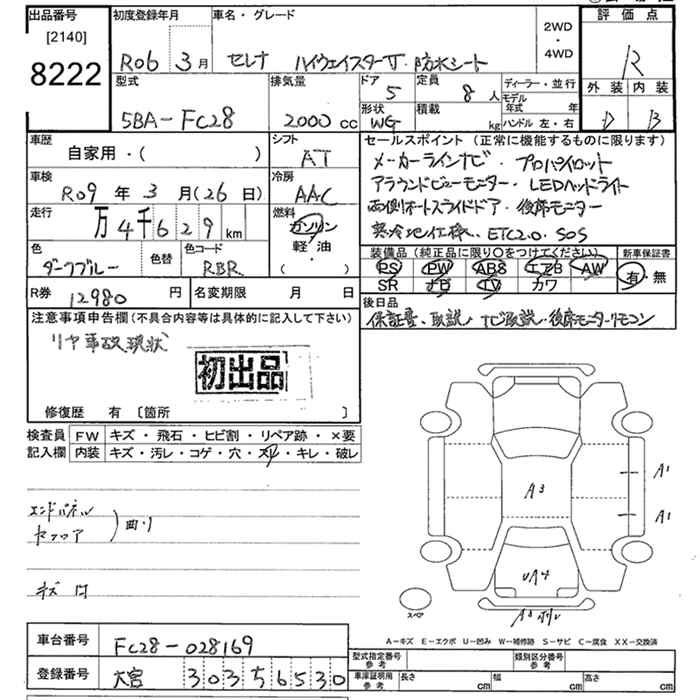 出品番号 初度登録年月 車名・グレード 評価点
[2140]
8222
R06年 3月 セレナ ハイウェイスターV・防水シート 2WD・4WD R
型式 排気量 ドア 定員 ディーラー・並行 外装 内装
5BA-FC28 2000cc 5 8人 モデル年式 年 D B
形状 積載 ハンドル 左・右
WG kg
車歴 シフト セールスポイント(正常に機能するものに限ります)
自家用・( ) AT メーカーラインナビ・プロパイロット
車検 冷房 アラウンドビューモニター・LEDヘッドライト
R09年3月(26日) AAC 両側オートスライドドア・後席モニター
走行 燃料 寒冷地仕様、ETC2.0・SOS
万4千629km ガソリン
軽・油
( )
色 色替 色コード 装備品(純正品に限り○をつけてください) 新車保証書
ダークブルー RBR PS PW ABS エアB AW 有・無
SR ナビ TV カワ
R券 12980円 名変期限 月 日 後日品
保証書、取説、ナビ取説・後席モニターリモコン
注意事項申告欄(不具合内容等は具体的に記入して下さい)
リヤ事故現状
初出品
修復歴 有 [箇所 ]
検査員 FW キズ・飛石・ヒビ割・リペア跡・×要
記入欄 内装 キズ・汚レ・コゲ・穴・スレ・キレ・破レ
A1
A3
エンドパネル
A1
曲り
UA4
キズ 凹
スペア
A3
A-キズ E-エクボ U-凹み W-補修跡 S-サビ C-腐食 XX-交換済
車台番号 FC28-028169
登録番号 大宮 303 す 6530
型式指定番号 参考 類別区分番号 参考
車庫証明用 参考 長さ cm 幅 cm 高さ cm